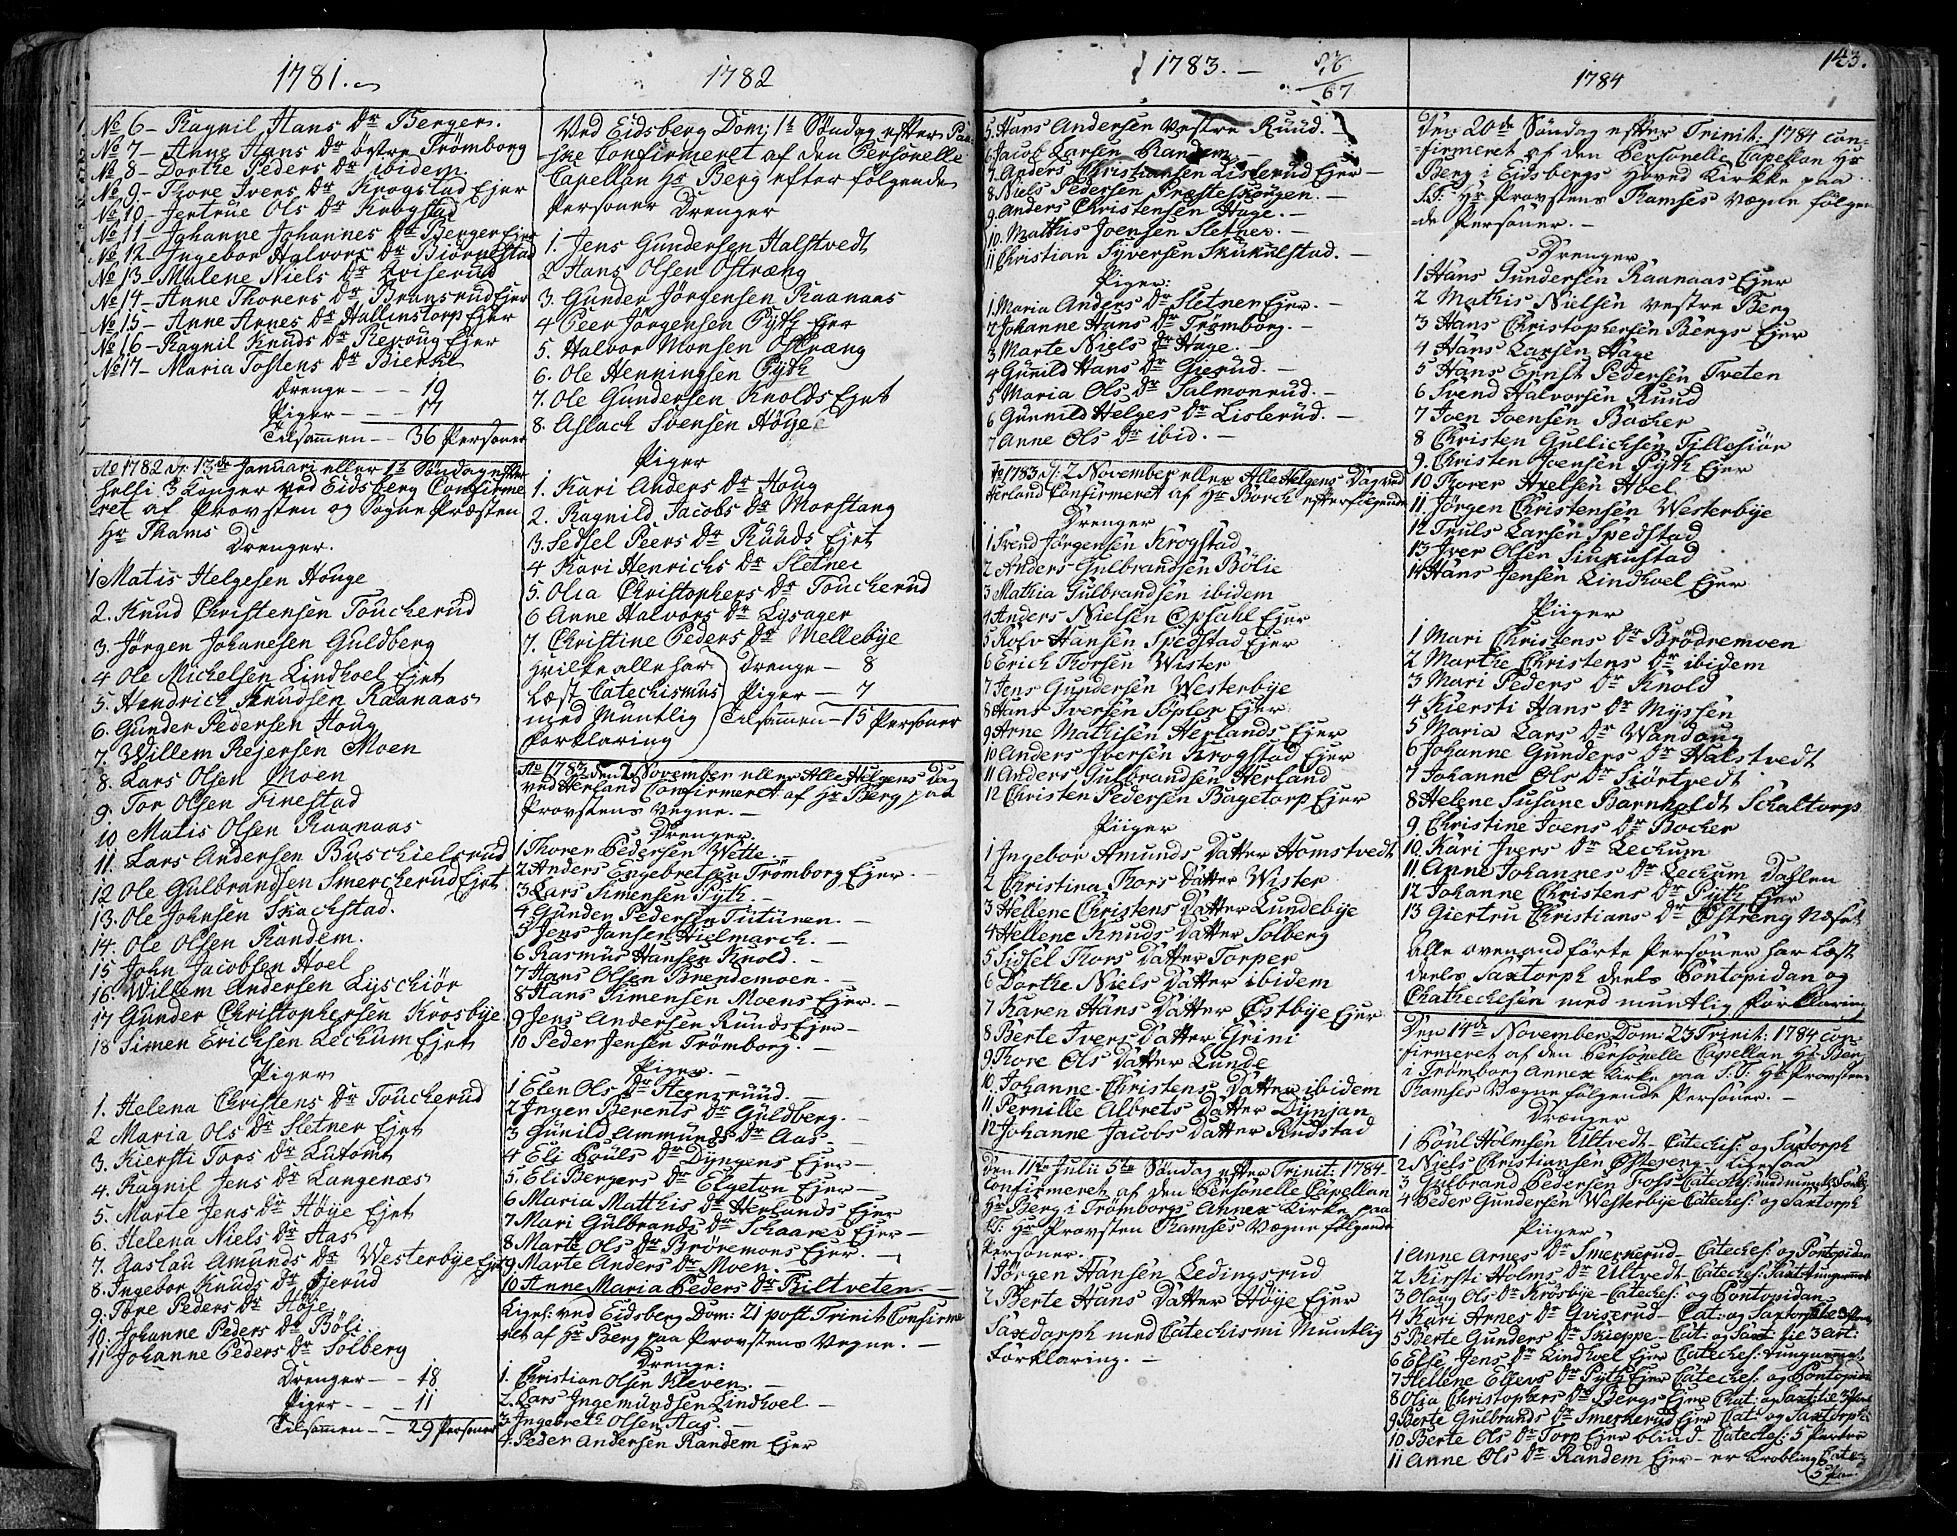 1781.
No 6 - Ragnil Hans Dr Berger.
No 7 - Anne Hans Dr østre Trömborg
No 8 - Dorthe Peders Dr ibidem.
No 9 - Thore Ivers Dr Krogstad Ejer
No 10 - Jertrue Ols Dr Krogstad
No 11 - Johanne Johannes Dr Berger Ejer
No 12 - Ingebor Halvors Dr Biörnestad
No 13 - Malene Niels Dr Qviserud
No 14 - Anne Thorers Dr Bransrud Ejer
No 15 - Anne Arnes Dr Hallinstorp Ejer
No 16 - Ragnil Knuds Dr Reroug Ejer
No 17 - Maria Tostens Dr Bierke
Drenge - - - 19
Piger - - - 17
Tilsammen - - 36 Personer
Ao 1782 d: 13de Januari eller 1te Söndag efter
helli 3 Konger ved Eidsberg Confirme
ret af Provsten og Sogne Præsten
Hr Thams
Drenger.
1 Matis Helgesen Houge
2. Knud Christensen Toucherud
3. Jörgen Johanesen Guldberg
4 Ole Michelsen Lindhoel Ejet
5. Hendrich Knudsen Raanaas
6. Gunder Pedersen Houg
7. Willem Rejersen Moen
8. Lars Olsen Moen
9. Tor Olsen Finestad
10 Matis Olsen Raanaas
11. Lars Andersen Buschielsrud
12 Ole Gulbrandsen Smercherud Ejet
13. Ole Johnsen Skachstad.
14. Ole Olsen Randem.
15 John Jacobsen Hoel
16. Willem Andersen Lyschiör
17 Gunder Christophersen Krosbye
18 Simen Erichsen Lechum Ejet
Piger
1. Helena Christens Dr Toucherud
2 Maria Ols Dr Sletner Ejet
3. Kiersti Tors Dr Lutomt
4. Ragnil Jens Dr Langenæs
5. Marte Jens Dr Höye Ejet
6. Helena Niels Dr Aas
7. Aaslau Amunds Dr Westerbye Ejet
8. Ingebor Knuds Dr Gjerud
9. Tore Peders Dr Höje
10. Johanne Peders Dr Böli
11 Johanne Peders Dr Solberg
Drenger - - 18
Piger - - - 11
Tilsammen - - 29 Personer
1782
Ved Eidsberg Dom: 1te Söndag efter Paa
ske Confirmeret af den Personelle
Capellan Hr Berg efter fölgende
Personer
Drenger
1. Jens Gundersen Halstvedt
2 Hans Olsen Östræng
3. Gunder Jörgensen Raanaas
4 Peer Jörgensen Pyth Ejer
5. Halvor Monsen Östræng
6. Ole Henningsen Pyth
7. Ole Gundersen Knolds Ejet
8. Aslach Svensen Höye
Piger
1. Kari Anders Dr Houg
2. Ragnild Jacobs Dr Morstang
3. Sessel Peers Dr Ruuds Ejet
4 Kari Henrichs Dr Sletner
5. Olia Christophers Dr Toucherud
6 Anne Halvors Dr Lysager
7. Christine Peders Dr Mellebye
hvilke alle har
læst Catechismus
med Muntlig
forklaring
Drenge - 8
Piger - 7
Tilsammen - 15 Personer
Ao 1783 den 2 November eller Alle Helgens Dag
ved Herland Confirmeret af Hr Berg paa
Provstens vegne. -
Drenger.
1 Thorer Pedersen Wette.
2 Anders Engebretsen Trömborg Ejer. -
3 Lars Simensen Pyth. -
4 Gunder Pedersen Tutunen. -
5 Jens Jansen Hielmarch. -
6 Rasmus Hansen Knold. -
7 Hans Olsen Brendemoen. -
8 Hans Simensen Moens Ejer. -
9 Jens Andersen Ruuds Ejer -
10 Peder Jensen Trömborg. -
Piger. -
1 Elen Ols Dr Heensruud. -
2 Ingen Berents Dr Guldberg. -
3 Gunild Ammunds Dr Aas. -
4 Eli Pouls Dr Dyngens Ejer -
5. Eli Bergers Dr Elgeton Ejer -
6 Maria Matthis Dr Herlands Ejer
7 Mari Gulbrands Dr Schaares Ejer -
8 Marte Ols Dr Bröremons Ejer. -
9 Marte Anders Dr Moen. -
10 Anne Maria Peders Dr Biltveten. -
Ligel: ved Eidsberg Dom: 21 post Trinit Confirme
ret af Hr Berg paa Provstens Vegne. -
Drenge:
1. Christian Olsen Kleven. -
2. Lars Ingemundsen Lindhoel -
3 Ingebreth Olsen Aas. -
4. Peder Andersen Randem Ejer
1783. -
67
5. Hans Andersen Vestre Ruud. -
6 Jacob Larsen Randem -
7. Anders Christiansen Listerud Ejer -
8 Niels Pedersen Prestetskougen. -
9. Anders Christensen Hage. -
10. Mathis Joensen Sletner. -
11 Christian Syversen Skukulstad. -
Piger:
1. Maria Anders Dr Sletner Ejer. -
2 Johanne Hans Dr Trömborg. -
3 Marte Niels Dr Hage. -
4 Gunild Hans Dr Gierud. -
5 Maria Ols Dr Salmonrud. -
6 Gunnild Helges Dr Listerud. -
7 Anne Ols Dr ibid. -
Ao 1783 d: 2 November eller Alle Helgens Dag ved
Herland Confirmeret af Hr Borch efterfölgende
Drenger
1 Svend Jörgensen Krogstad
2 Anders Gulbrandsen Bölie
3 Mathia Gulbrandsen ibidem
4 Anders Nielsen Opsahl Ejer
5 Rolv Hansen Spedstad Ejer
6 Erich Thorsen Wister
7 Jens Gundersen Westerbye
8 Hans Iversen Söpler Ejer
9 Arne Mathisen Herlands Ejer
10 Anders Iversen Krogstad Ejer
11 Anders Gulbrandsen Herland
12 Christen Pedersen Bagetorp Ejer
Piiger
1 Ingebor Amunds Datter Homstvedt
2 Christina Thors Datter Wister
3 Hellene Christens Datter Lundebye
4 Hellene Knuds Datter Solberg
5 Sidsel Thors Datter Torper
6 Dorthe Niels Datter ibidem
7 Karen Hans Datter Östbye Ejer
8 Berte Ivers Datter Grini
9 Thore Ols Datter Lunde
10 Johanne Christens Datter ibidem
11 Pernille Albrets Datter Dynjan
12 Johanne Jacobs Datter Rudstad
Den 11te Julii 5te Söndag efter Trinit: 1784.
Confirmeret af den Personelle Capellan
Hr Berg i Trömborgs Annex Kirke paa
S.T. Hr Provsten Thamses Vægne fölgende
Personer.
1 Jörgen Hansen Ledingsrud
2 Berte Hans Datter Höye Ejer
Saxdorph med Catechismi Muntlig
Forklaring. -
1784
143.
Den 20de Söndag efter Trinit: 1784 con-
firmeret af den Personelle Capellan Hr
Berg i Eidsbergs Hoved Kirkke paa
S.T. Hr Provstens Thamses Vægne fölgen
de Personer. -
Drenger
1 Hans Gundersen Raanaas Ejer
2 Mathis Nielsen vestre Berg
3 Hans Christophersen Bergs Ejer
4 Hans Larsen Hage
5 Hans Ernst Pedersen Tveten
6 Svend Halvorsen Ruud
7 Joen Joensen Bocher
8 Christen Gullichsen Tillosiör
9. Christen Joensen Pyth Ejer
10 Thorer Axelsen Hoel
11. Jörgen Christensen Westerbye
12 Truls Larsen Spedstad
13 Iver Olsen Sukustad
14 Hans Jensen Lindhoel Ejer
Piiger
1 Mari Christens Dr Brödremoen
2 Marthe Christens Dr ibidem
3 Mari Peders Dr Knold
4 Kiersti Hans Dr Myssen
5 Maria Lars Dr Wandoug
6 Johanne Gunders Dr Halstvedt
7 Johanne Ols Dr Tiortvedt
8 Helene Susane Barnholdt Schaltorp
9. Christine Joens Dr Bocher
10. Kari Ivers Dr Lechum
11. Anne Johannes Dr Lechum Dahlen
12 Johanne Christens Dr Pyth Ejer
13 Giertru Christians Dr Østreng Næset
Alle ovenandförte Personer har Læst
deels Saxtorph deels Pontopidan og
Chathechesen med muntlig Forklaring
Den 14de November Dom: 23 Trinit: 1784 con-
firmeret af den Personelle Capellan Hr Berg
i Trömborg Annex Kirke paa S.T. Hr Provsten
Thamses Vægne fölgende Personer. -
Drænger
1 Poul Holmsen Ultvedt - Catechs: og Saxtorph
2 Niels Christiansen Østereng - Ligesaa
3 Gulbrand Pedersen Foss - Catechs: med mundt: Forkl:
4 Peder Gundersen Westerbye Cateches: og Saxtorph
Piiger
1 Anne Arnes Dr Smerkerud - Cateches: og Pontopidan
2 Kirsti Holms Dr Ultvedt - Cateches: Saxt: ungumet
3 Oloug Ols Dr Krosbye - Cateches: og Pontopidan
4 Kari Arnes Dr Qviserud - Cat: og Saxtorph
5 Berte Gunders Dr Skieppe - Cat: og Saxt tie 3 art:
6 Else Jens Dr Lindhoel Ejer Cateches:
7 Hellene Ellevs Dr Pyth Ejer Cateches: og Pontopidan
8 Olia Christophers Dr Bergs Ejer Chat: og Saxt
9 Berte Gulbrands Dr Smerkerud Ejer Cat: og Saxtorph
10 Berte Ols Dr Torp Ejer blind - Cateches: 5 Parter
11 Anne Ols Dr Randem Ejer - er Krobling Cate:
5 Par: